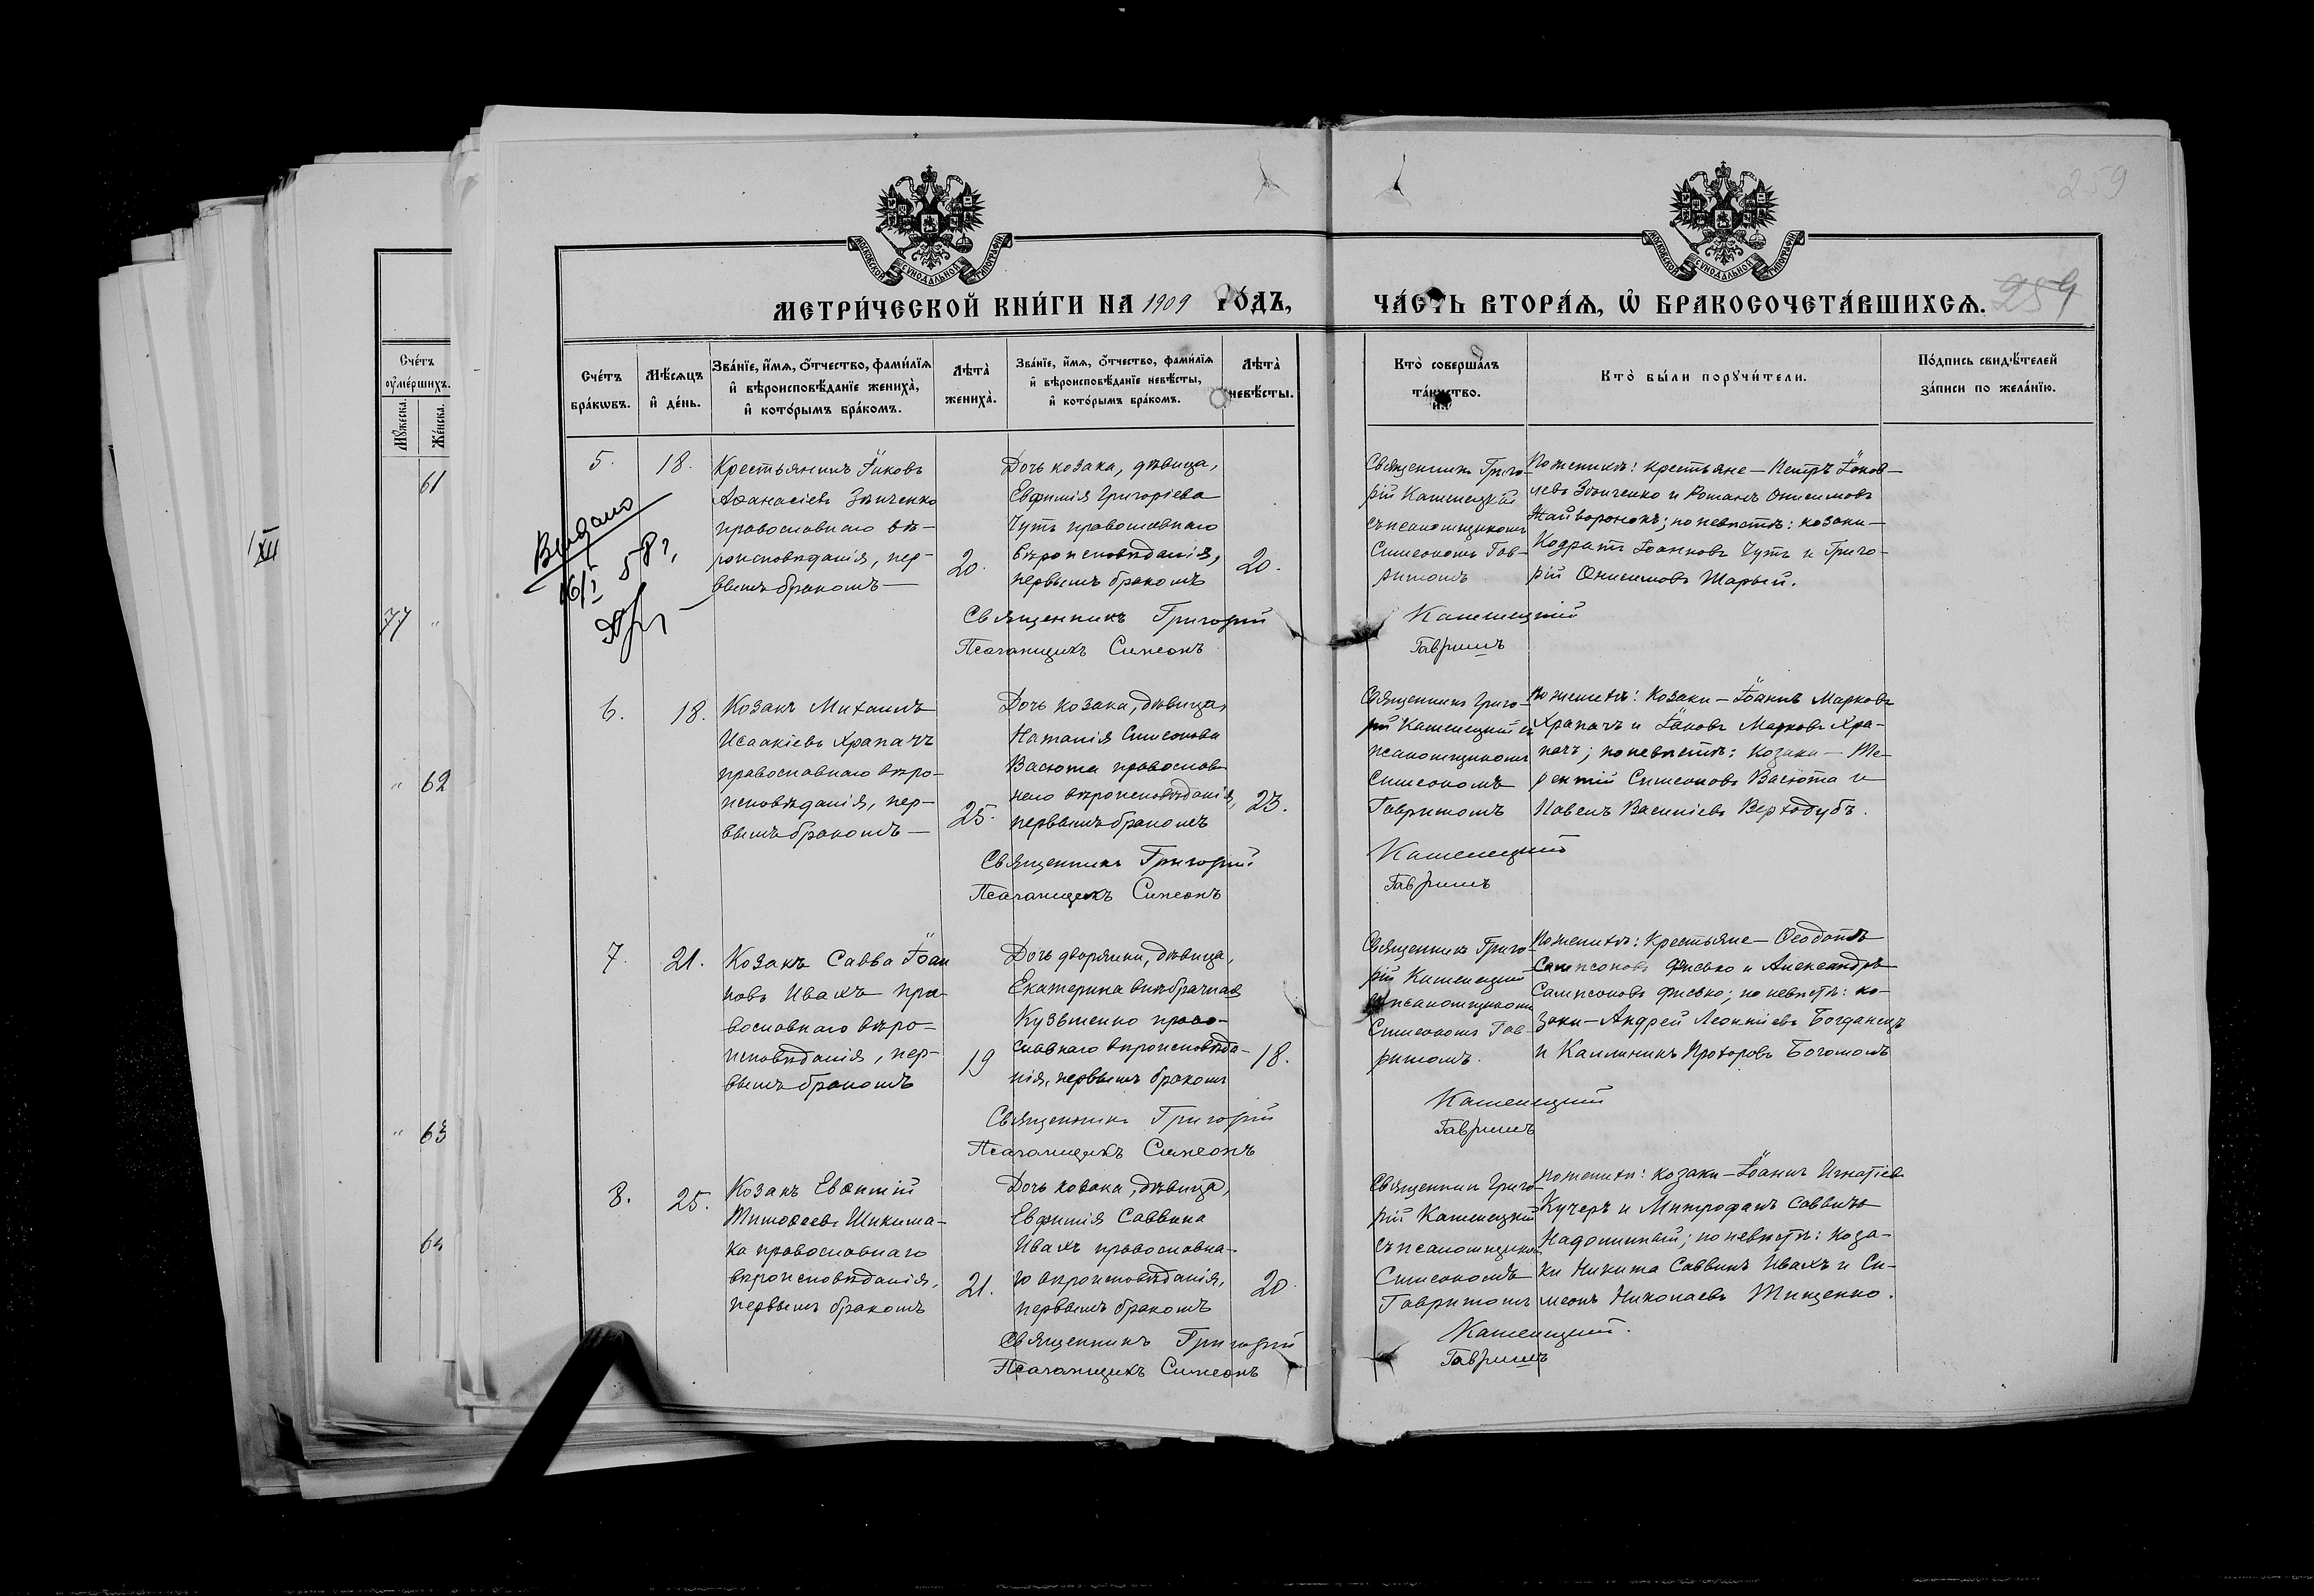 259
МОСКОВСКОЙ СУНОДАЛЬНОЙ ТИПОГРАФІИ
МОСКОВСКОЙ СУНОДАЛЬНОЙ ТИПОГРАФІИ
МЕТРИ́ЧЕСКОЙ КНИ́ГИ НА 1909 ГО́ДЪ,
ЧА́СТЬ ВТОРА́Я, Ѡ҆ БРАКОСОЧЕТА́ВШИХСЯ.
259
Сче́тъ
ᲂу҆ме́ршихъ.
Мꙋ́жеска.
Же́нска.
61
1 XII
77 "
" 62
" 63
64
Сче́тъ
бра́кѡвъ.
Мѣ́сяцъ
и҆ де́нь.
Зва́нїе, и҆́мя, ѻ҆́тчество, фами́лїя
и҆ вѣроисповѣ́данїе жениха̀,
и҆ кото́рымъ бра́комъ.
Лѣ́та̀
жениха̀.
Зва́нїе, и҆́мя, ѻ҆́тчество, фами́лїя
и҆ вѣроисповѣ́данїе невѣ́сты,
и҆ кото́рымъ бра́комъ.
Лѣ́та̀
невѣ́сты.
Кто̀ соверша́лъ
та́инство.
Кто̀ бы́ли порꙋчи́тели.
По́дпись свидѣ́телей
за́писи по жела́нїю.
5.
18.
Выдано
16/I 58 г.
Крестьянинъ Іаковъ
Аѳанасіевъ Зѣнченко
православнаго вѣ-
роисповѣданія, пер-
вымъ бракомъ
20.
Дочь козака, дѣвица,
Евфимія Григоріева
Чутъ православнаго
вѣроисповѣданія,
первымъ бракомъ
20.
Священникъ Григо-
рій Каменецкій
съ псаломщикомъ
Симеономъ Гав-
ришомъ
По женихѣ: крестьяне — Петръ Іаков-
левъ Зѣнченко и Романъ Онисимовъ
Жайворонокъ; по невѣстѣ: козаки —
Кодратъ Іоанновъ Чутъ и Григо-
рій Онисимовъ Шарый.
Священникъ Григорій Каменецкій
Псаломщикъ Симеонъ Гавришъ
6.
18.
Козакъ Михаилъ
Исаакіевъ Храпачъ
православнаго вѣро-
исповѣданія, пер-
вымъ бракомъ —
25.
Дочь козака, дѣвица,
Наталія Симеонова
Васюта православ
наго вѣроисповѣданія,
первымъ бракомъ
23.
Священникъ Григо-
рій Каменецкій съ
псаломщикомъ
Симеономъ
Гавришомъ
По женихѣ: Козаки — Іоаннъ Марковъ
Храпачъ и Іаковъ Марковъ Хра-
пачъ; по невѣстѣ: Козаки — Те-
рентій Симеоновъ Васюта и
Павелъ Василіевъ Верходубъ.
Священникъ Григорій Каменецкій
Псаломщикъ Симеонъ Гавришъ
7.
21.
Козакъ Савва Іоан
новъ Ивахъ пра-
вославнаго вѣро-
исповѣданія, пер-
вымъ бракомъ
19
Дочь дворянки, дѣвица,
Екатерина внѣбрачная
Кузьменко право-
славнаго вѣроисповѣда-
нія, первымъ бракомъ
18.
Священникъ Григо-
рій Каменецкій
съ псаломщикомъ
Симеономъ Гав-
ришомъ.
По женихѣ: Крестьяне — Ѳеодотъ
Сампсоновъ Фисько и Александръ
Сампсоновъ Фисько; по невѣстѣ: ко-
заки — Андрей Леонтіевъ Богданецъ
и Каллиникъ Прохоровъ Богомолъ
Священникъ Григорій Каменецкій
Псаломщикъ Симеонъ Гавришъ
8.
25.
Козакъ Евѳимій
Тимоѳеевъ Шикима-
ка православнаго
вѣроисповѣданія,
первымъ бракомъ
21.
Дочь козака, дѣвица,
Евфимія Саввина
Ивахъ православна-
го вѣроисповѣданія,
первымъ бракомъ
20
Священникъ Григо-
рій Каменецкій
съ псаломщикомъ
Симеономъ
Гавришомъ
По женихѣ: козаки — Іоаннъ Игнатіевъ
Кучеръ и Митрофанъ Саввинъ
по невѣстѣ: коза-
ки Никита Саввинъ Ивахъ и Си-
меонъ Николаевъ Тищенко.
Священникъ Григорій Каменецкій.
Псаломщикъ Симеонъ Гавришъ